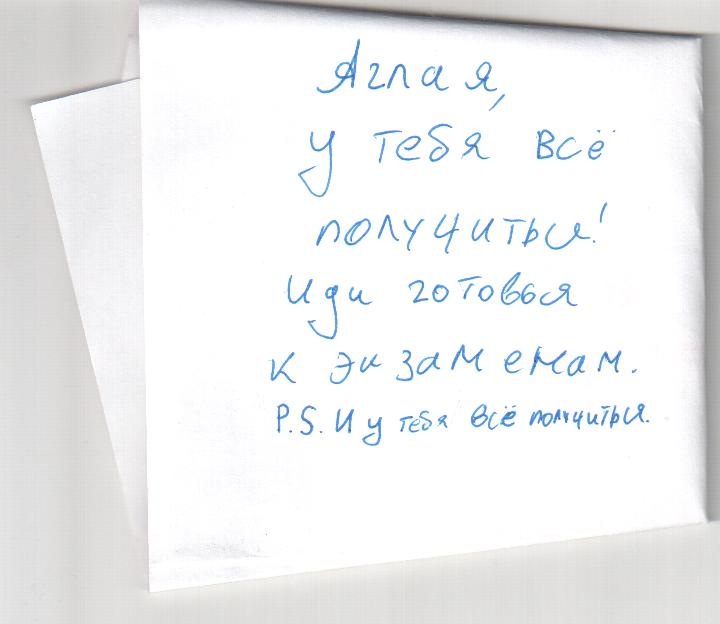 Аглая,
у тебя всё
получиться!
Иди готовься
к экзаменам.
P.S. И у тебя всё получиться.